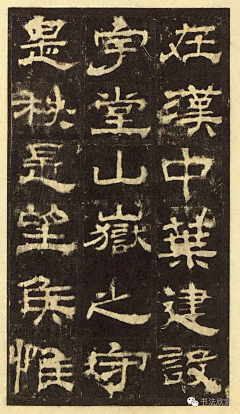 在漢中葉建設
宇堂山嶽之守
是秩是望侯惟
书法欣